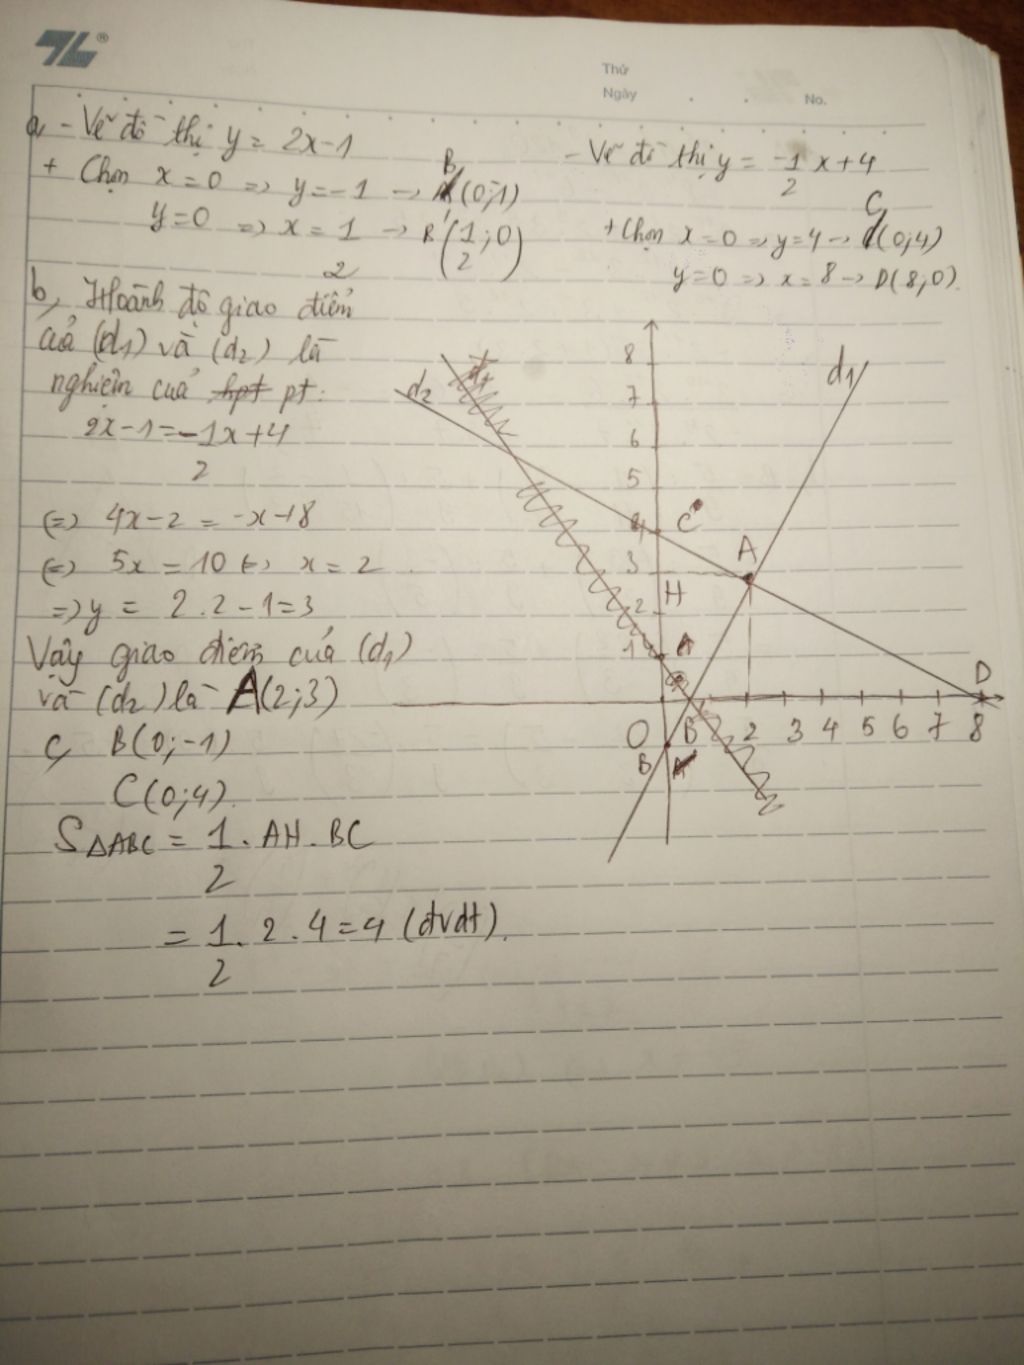 TL®
Thứ
Ngày . . No.
a, - Vẽ đồ thị y = 2x-1
+ Chọn x=0 => y=-1 -> B(0;-1)
y=0 => x = 1/2 -> B'(1/2;0)
- Vẽ đồ thị y = -1/2 x+4
+ Chọn x=0 => y=4 -> C(0;4)
y=0 => x=8 -> D(8;0).
b, Hoành độ giao điểm
của (d1) và (d2) là
nghiệm của hpt pt:
2x-1=-1/2x+4
<=> 4x-2 = -x+8
<=> 5x = 10 <=> x = 2
=> y = 2.2-1=3
Vậy giao điểm của (d1)
và (d2) là A(2;3)
c, B(0;-1)
C(0;4).
S△ABC = 1/2 . AH . BC
= 1/2 . 2 . 4 = 4 (đvdt).
d2
d1
d1
8
7
6
5
4 C
3 A
2 H
1 A
D
O B 2 3 4 5 6 7 8
B A